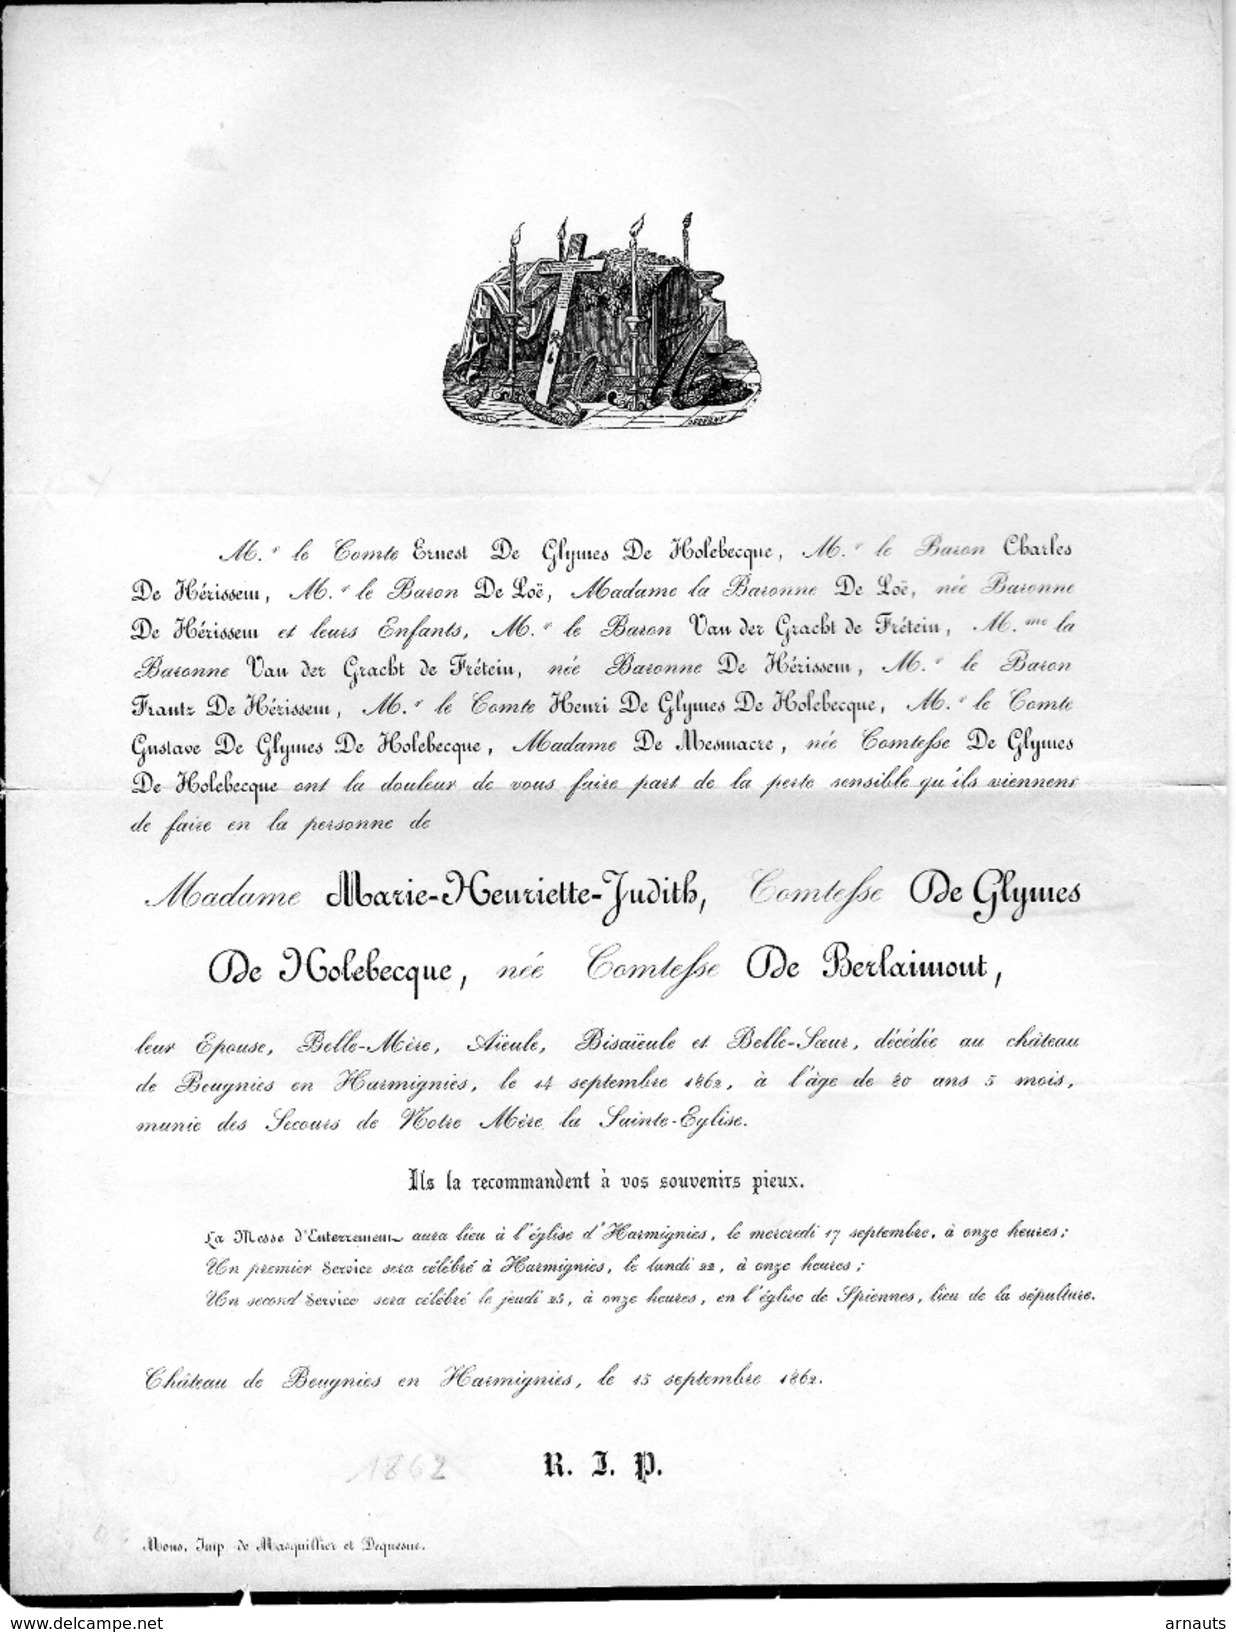 M.r le Comte Ernest De Glymes De Holebecque, M.r le Baron Charles
De Hérissem, M.r le Baron De Loë, Madame la Baronne De Loë, née Baronne
De Hérissem et leurs Enfants, M.r le Baron Van der Gracht de Frétein, M.me la
Baronne Van der Gracht de Frétein, née Baronne De Hérissem, M.r le Baron
Frantz De Hérissem, M.r le Comte Henri De Glymes De Holebecque, M.r le Comte
Gustave De Glymes De Holebecque, Madame De Mesmacre, née Comtesse De Glymes
De Holebecque ont la douleur de vous faire part de la perte sensible qu'ils viennent
de faire en la personne de
Madame Marie-Henriette-Judith, Comtesse De Glymes
De Holebecque, née Comtesse De Berlaimont,
leur Epouse, Belle-Mère, Aïeule, Bisaïeule et Belle-Sœur, décédée au château
de Beugnies en Harmignies, le 14 septembre 1862, à l'âge de 80 ans 5 mois,
munie des Secours de Notre Mère la Sainte-Eglise.
Ils la recommandent à vos souvenirs pieux.
La Messe d'Enterrement aura lieu à l'église d'Harmignies, le mercredi 17 septembre, à onze heures;
Un premier Service sera célébré à Harmignies, le lundi 22, à onze heures;
Un second Service sera célébré le jeudi 25, à onze heures, en l'église de Spiennes, lieu de la sépulture.
Château de Beugnies en Harmignies, le 15 septembre 1862.
1862
R. I. P.
Mons, Imp. de Masquillier et Dequesne.
www.delcampe.net
arnauts